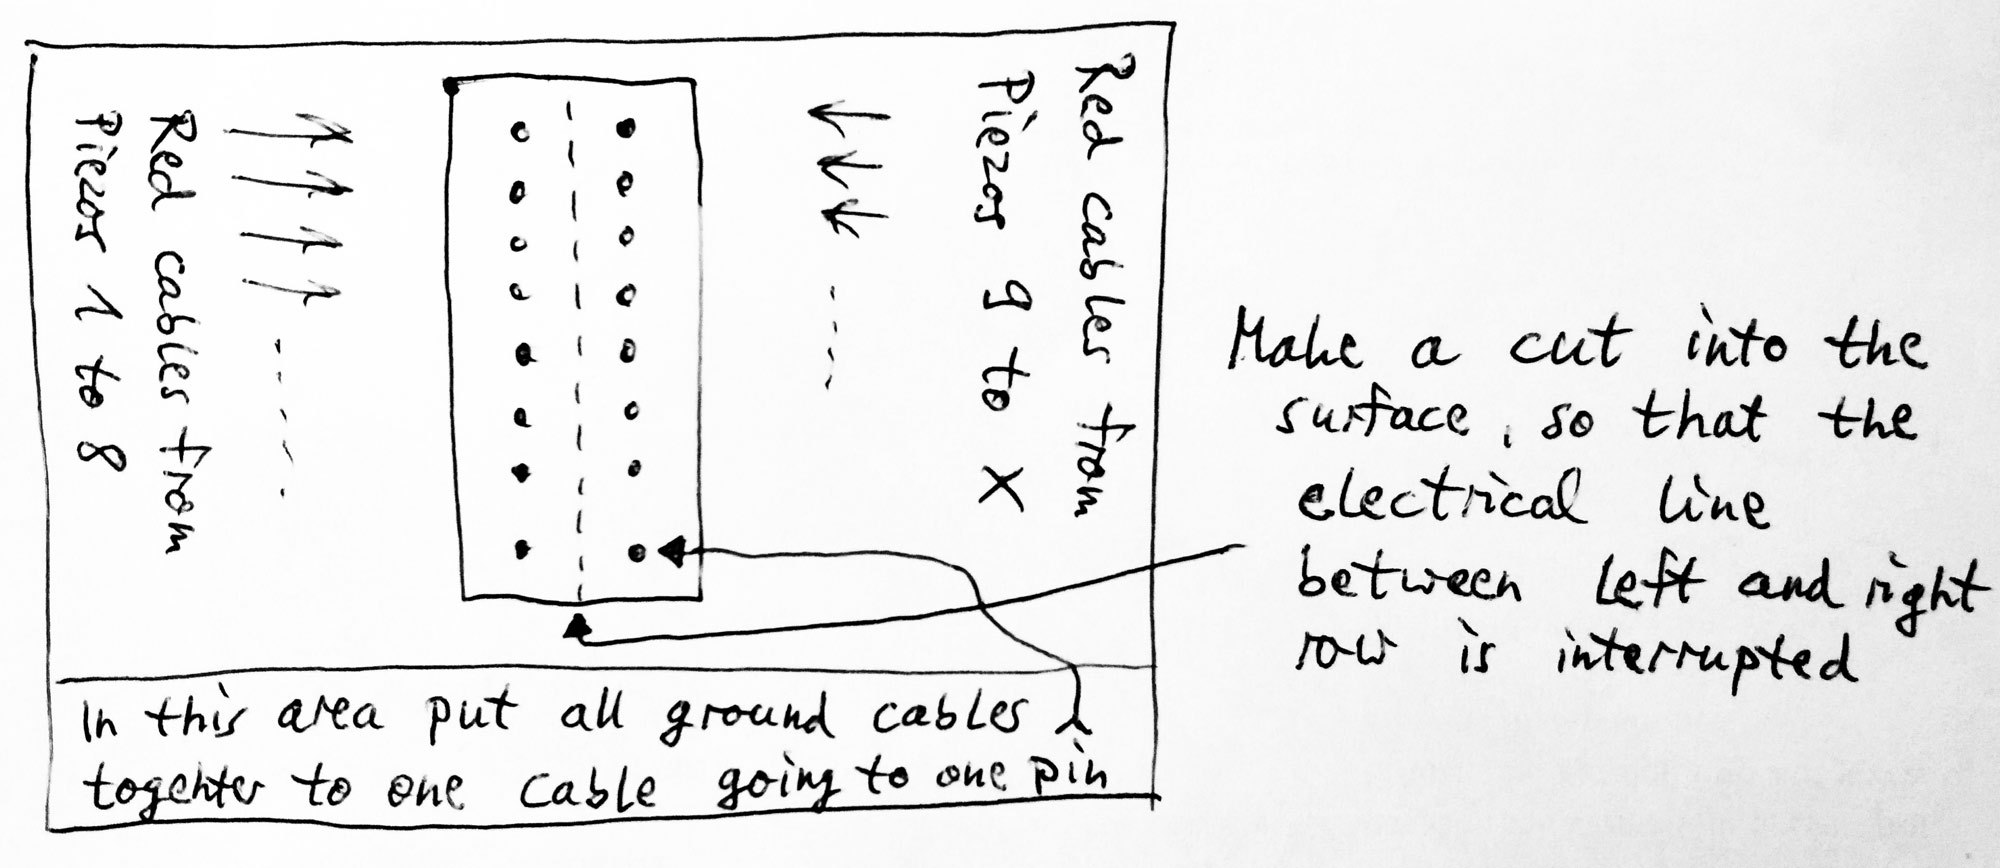 Red cables from
Piezos 1 to 8
Red cables from
Piezos 9 to X
Make a cut into the
surface, so that the
electrical line
between left and right
row is interrupted
In this area put all ground cables
togehter to one cable going to one pin